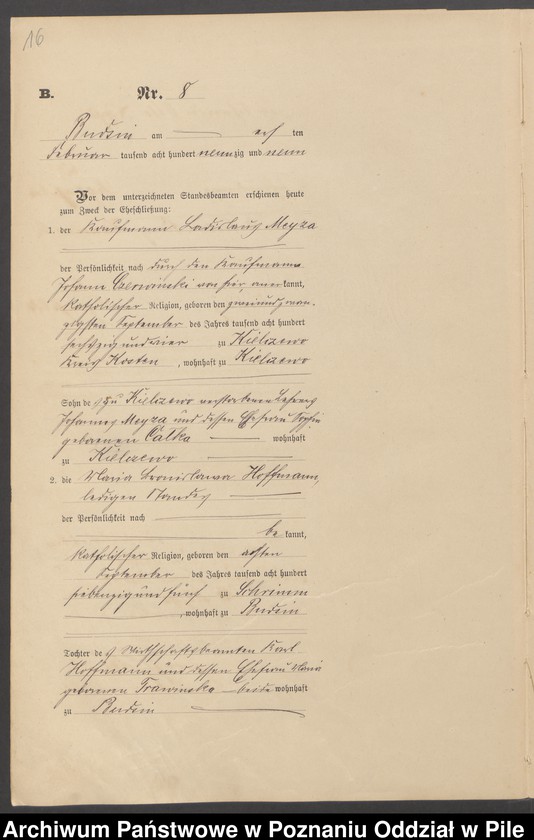 16
B. Nr. 8
Budsin am — acht ten
Februar tausend acht hundert neunzig und neun
Vor dem unterzeichneten Standesbeamten erschienen heute
zum Zweck der Eheschließung:
1. der Kaufmann Ladislaus Meyza
der Persönlichkeit nach durch den Kaufmann
Johann Czerwinski von hier, anerkannt,
katholischer Religion, geboren den zweiundzwan-
zigsten September des Jahres tausend acht hundert
sechszig und vier zu Kielczewo
Kreis Kosten, wohnhaft zu Kielczewo
Sohn des zu Kielczewo verstorbenen Lehrers
Johannes Meyza und dessen Ehefrau Sophie
geborenen Calka — wohnhaft
zu Kielczewo
2. die Maria Bronislawa Hoffmann,
ledigen Standes
der Persönlichkeit nach
be kannt,
katholischer Religion, geboren den achten
September des Jahres tausend acht hundert
siebenzig und fünf zu Schrimm
, wohnhaft zu Budsin
Tochter des Wirthschaftsbeamten Karl
Hoffmann und dessen Ehefrau Maria
geborenen Trawinska — beide wohnhaft
zu Budsin
Archiwum Państwowe w Poznaniu Oddział w Pile